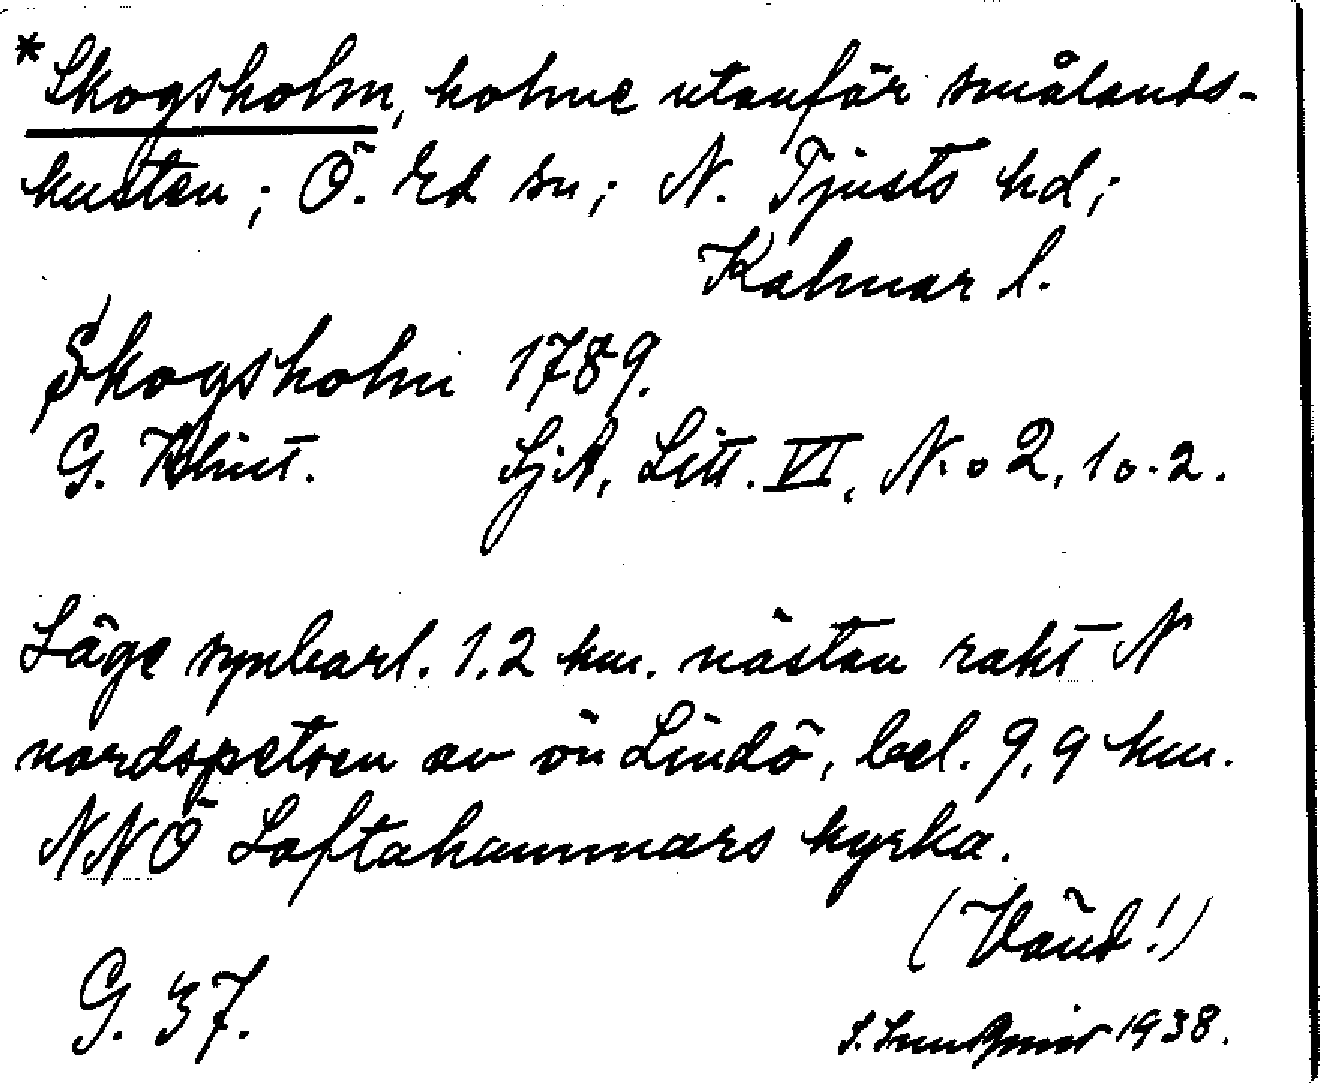 *Skogsholm, holme utanför smålands-
kusten; Ö. Ed sn; N. Tjusts hd;
Kalmar l.
Skogsholm 1789.
G. Klint. SjA, Litt. VI, N:o 2, 1 o. 2.
Läge synbarl. 1.2 km. nästan rakt N
nordspetsen av ön Lindö, bel. 9,9 km.
NNÖ Loftahammars kyrka.
(Vänd!)
G. 37. 1938.